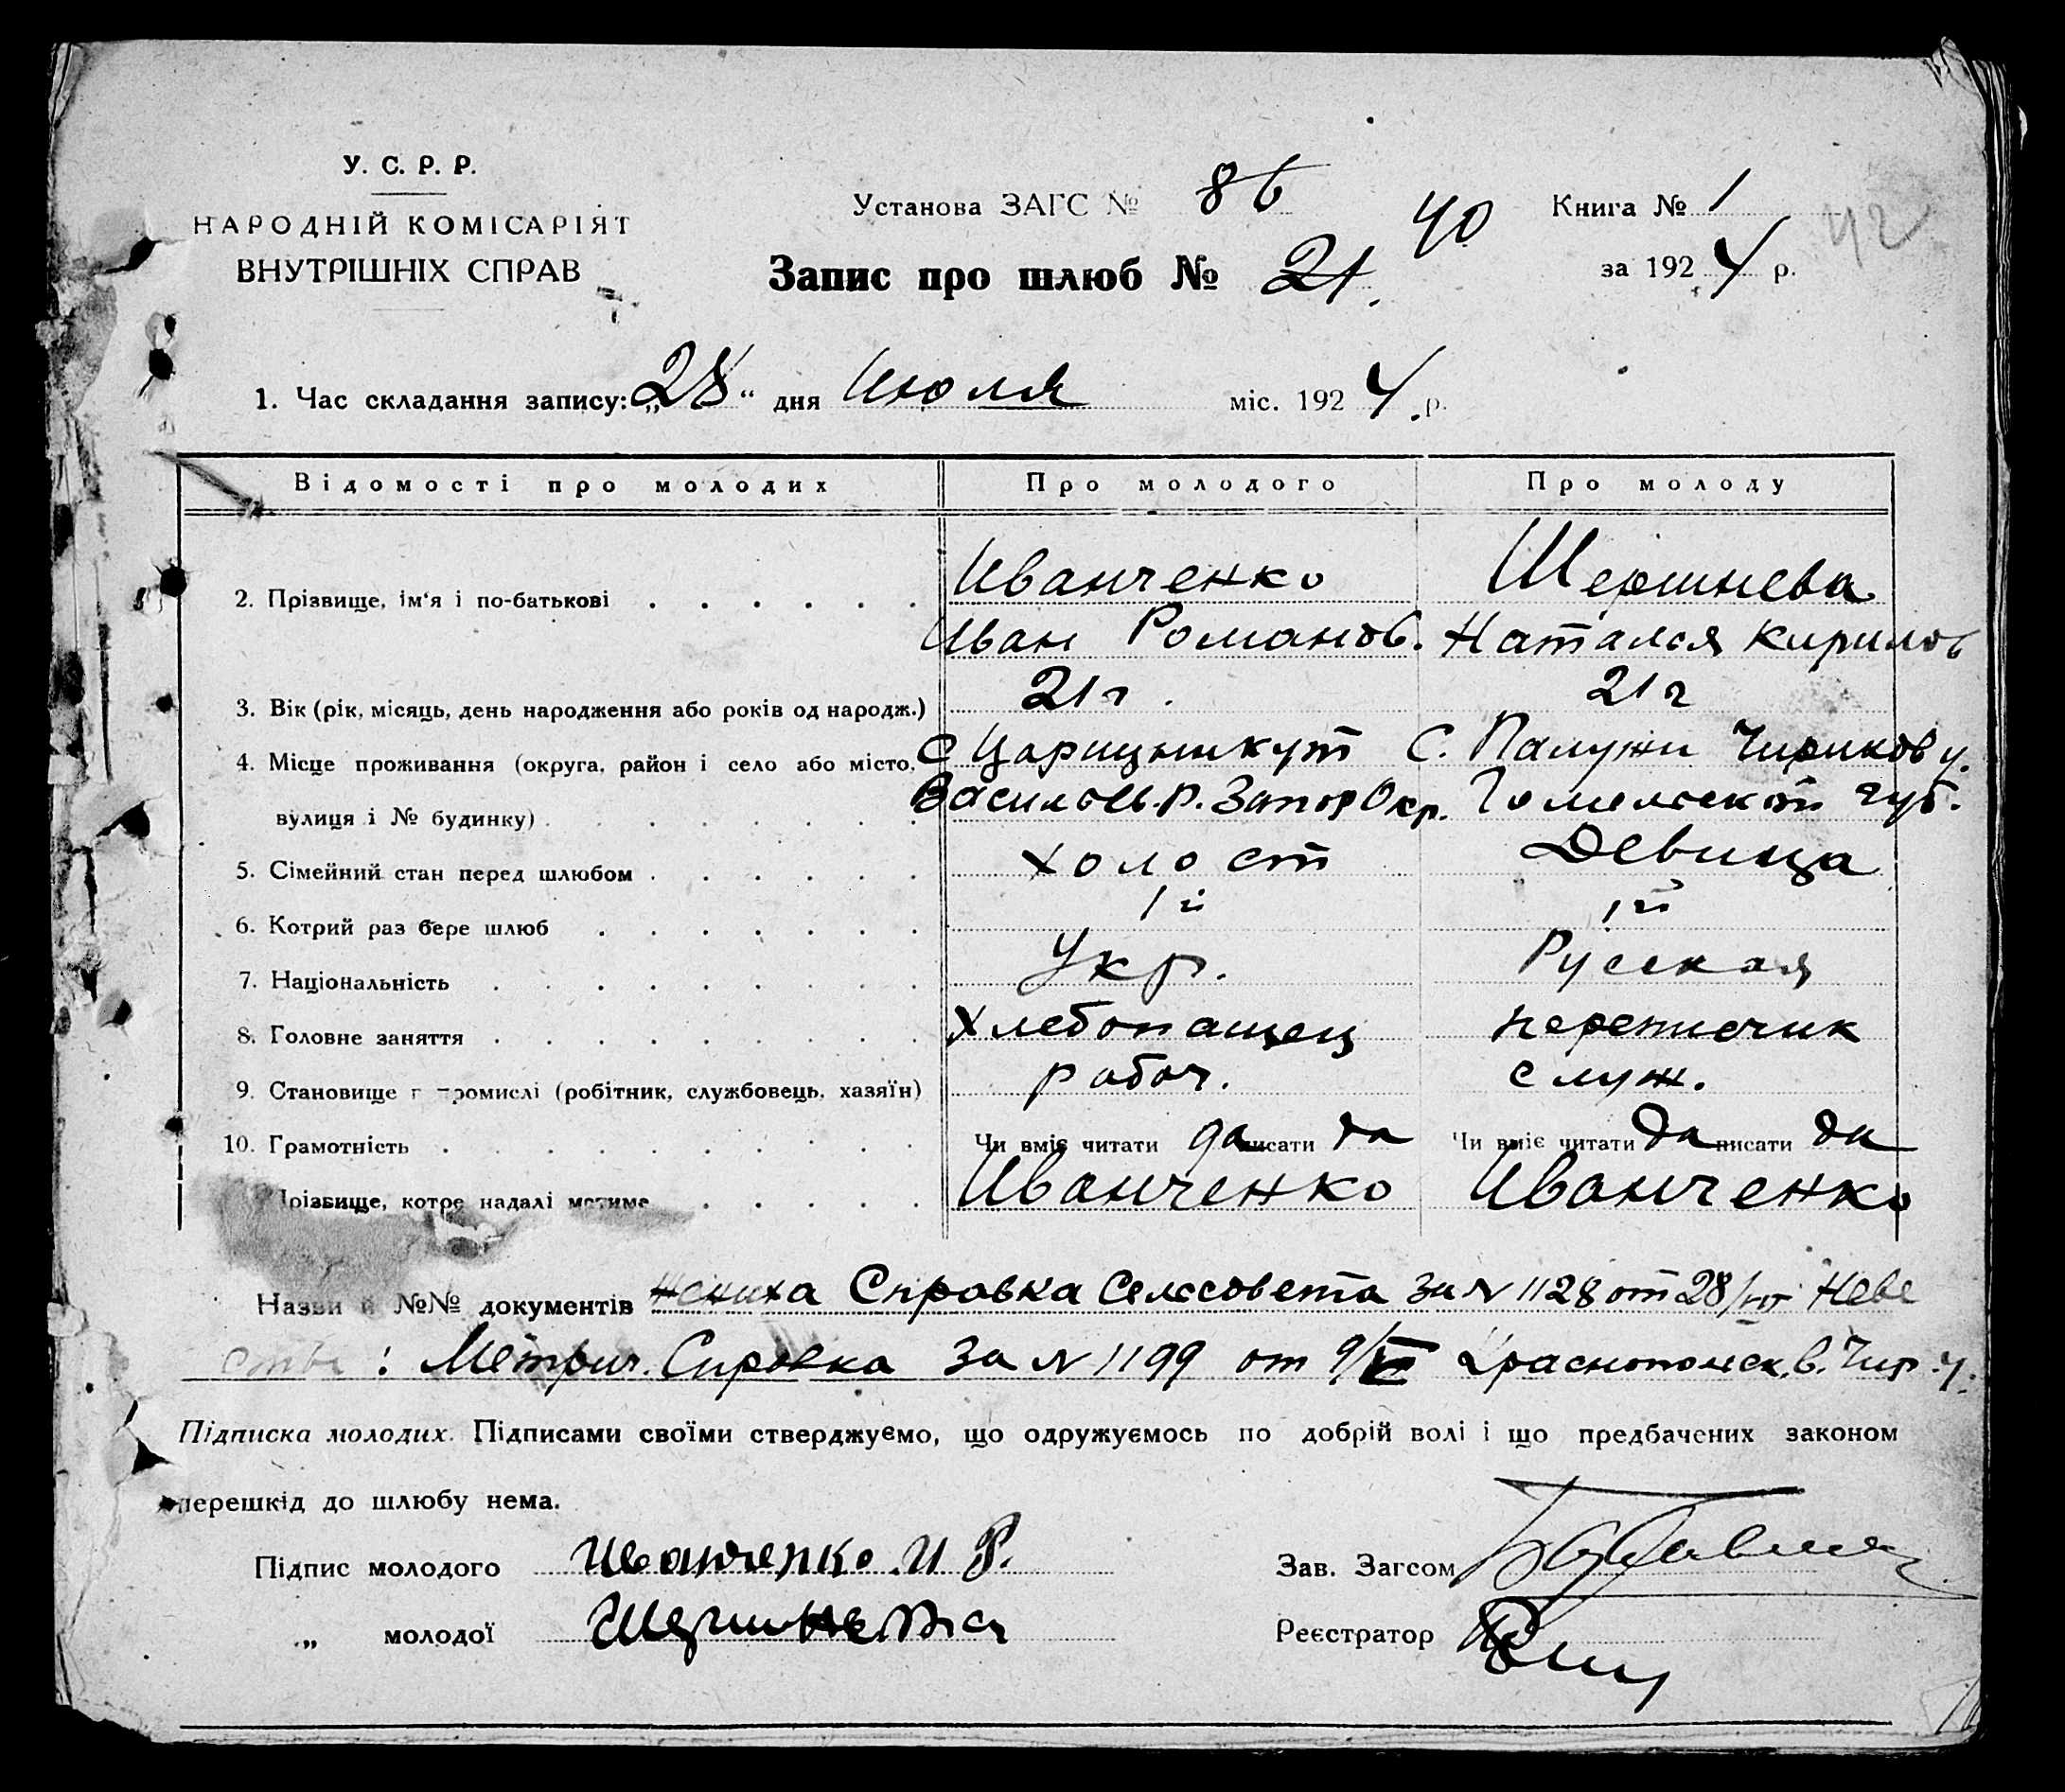 У. С. Р. Р.
НАРОДНІЙ КОМІСАРІЯТ
ВНУТРІШНІХ СПРАВ
Установа ЗАГС № 86
Книга № 1
40
42
Запис про шлюб № 21.
за 1924 р.
1. Час складання запису: „28“ дня Июля міс. 1924 р.
Відомості про молодих Про молодого Про молоду
Иванченко Шершнева
2. Прізвище, ім'я і по-батькові
Иван Романов. Наталия Кирилов
3. Вік (рік, місяць, день народження або років од народж.) 21 г. 21 г
4. Місце проживання (округа, район і село або місто, С Царицынкут С. Палужи Чириков у.
вулиця і № будинку) Васильев. р. Запор Окр. Гомельской губ.
5. Сімейний стан перед шлюбом холост Девица
6. Котрий раз бере шлюб 1й 1й
7. Національність Укр. Русская
8. Головне заняття Хлебопашец переписчик
9. Становище промислі (робітник, службовець, хазяїн) рабоч. служ.
10. Грамотність Чи вміє читати да писати да Чи вміє читати да писати да
Прізвище, котре надалі матиме Иванченко Иванченко
Назви й №№ документів жениха Справка Сельсовета за № 1128 от 28/VII Неве
сты : Метрич. Справка за № 1199 от 9/ Краснопольск. в. Чир. у.
Підписка молодих. Підписами своїми стверджуємо, що одружуємось по добрій волі і що предбачених законом
перешкід до шлюбу нема.
Підпис молодого Иванченко И Р.
Зав. Загсом
„ молодої Шершнева
Реєстратор